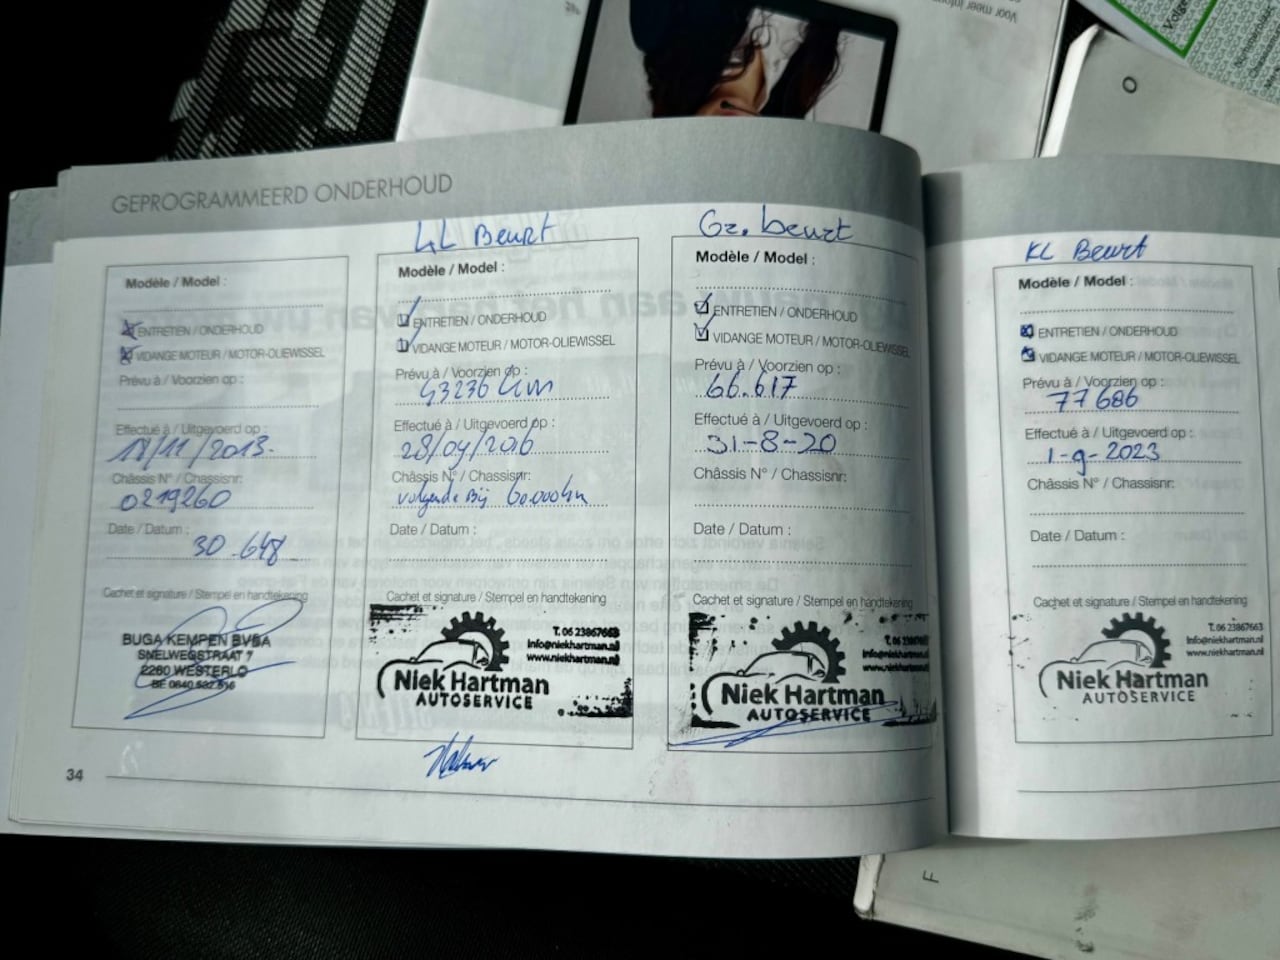 Voor meer inform
GEPROGRAMMEERD ONDERHOUD
Modèle / Model :
ENTRETIEN / ONDERHOUD
VIDANGE MOTEUR / MOTOR-OLIEWISSEL
Prévu à / Voorzien op :
Effectué à / Uitgevoerd op :
18/11/2013.
Châssis N° / Chassisnr:
0219260
Date / Datum :
30.648
Cachet et signature / Stempel en handtekening
BUGA KEMPEN BVBA
SNELWEGSTRAAT 7
2260 WESTERLO
BE 0840.532.516
34
KL Beurt
Modèle / Model :
ENTRETIEN / ONDERHOUD
VIDANGE MOTEUR / MOTOR-OLIEWISSEL
Prévu à / Voorzien op :
43236 km
Effectué à / Uitgevoerd op :
28/04/2016
Châssis N° / Chassisnr:
volgende Bij 60.000km
Date / Datum :
Cachet et signature / Stempel en handtekening
T. 06 23867663
info@niekhartman.nl
www.niekhartman.nl
Niek Hartman
AUTOSERVICE
Gr. beurt
Modèle / Model :
ENTRETIEN / ONDERHOUD
VIDANGE MOTEUR / MOTOR-OLIEWISSEL
Prévu à / Voorzien op :
66.617
Effectué à / Uitgevoerd op :
31-8-20
Châssis N° / Chassisnr:
Date / Datum :
Cachet et signature / Stempel en handtekening
T. 06 23867663
info@niekhartman.nl
www.niekhartman.nl
Niek Hartman
AUTOSERVICE
KL Beurt
Modèle / Model :
ENTRETIEN / ONDERHOUD
VIDANGE MOTEUR / MOTOR-OLIEWISSEL
Prévu à / Voorzien op :
77686
Effectué à / Uitgevoerd op :
1-9-2023
Châssis N° / Chassisnr:
Date / Datum :
Cachet et signature / Stempel en handtekening
T. 06 23867663
info@niekhartman.nl
www.niekhartman.nl
Niek Hartman
AUTOSERVICE